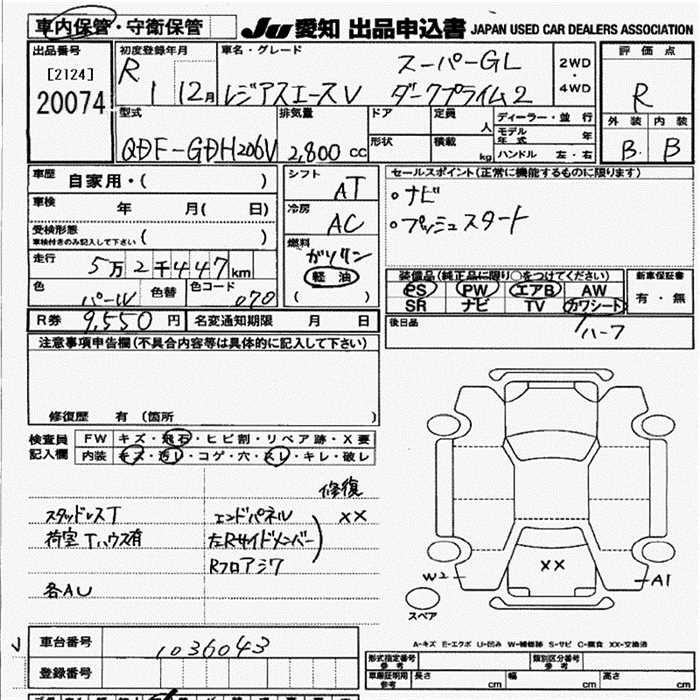 車内保管・守衛保管
JU 愛知 出品申込書 JAPAN USED CAR DEALERS ASSOCIATION
出品番号
[2124]
20074
初度登録年月
R 1 12月
車名・グレード
スーパーGL
レジアスエースV ダークプライム2
2WD
・
4WD
評価点
R
外装 内装
B B
型式
QDF-GDH206V
排気量
2,800 cc
ドア
定員 人
形状
積載 kg
ディーラー・並行
モデル年式 年
ハンドル 左・右
車歴 自家用・( )
シフト
AT
車検 年 月( 日)
冷房
AC
受検形態
車検付きのみ記入して下さい ( )
燃料
ガソリン
軽油
( )
走行 5万2千447km
色 パーW 色替 色コード 070
R券 9,550円 名変通知期限 月 日
セールスポイント(正常に機能するものに限ります)
・ナビ
・プッシュスタート
装備品(純正品に限り○をつけてください)
PS PW エアB AW
SR ナビ TV カワシート
ハーフ
新車保証書
有・無
後日品
注意事項申告欄(不具合内容等は具体的に記入して下さい)
修復歴 有(箇所 )
検査員記入欄
FW キズ・飛石・ヒビ割・リペア跡・X要
内装 キズ・汚レ・コゲ・穴・スレ・キレ・破レ
修復
スタッドレスT
荷室Tハウス有
各AU
エンドパネル XX
左Rサイドメンバー
Rフロア
XX
W2
A1
スペア
A-キズ E-エクボ U-凹み W-補修跡 S-サビ C-腐食 XX-交換済
車台番号 1036043
登録番号
形式指定番号 参考
類別区分番号 参考
車庫証明用 参考 長さ cm 幅 cm 高さ cm